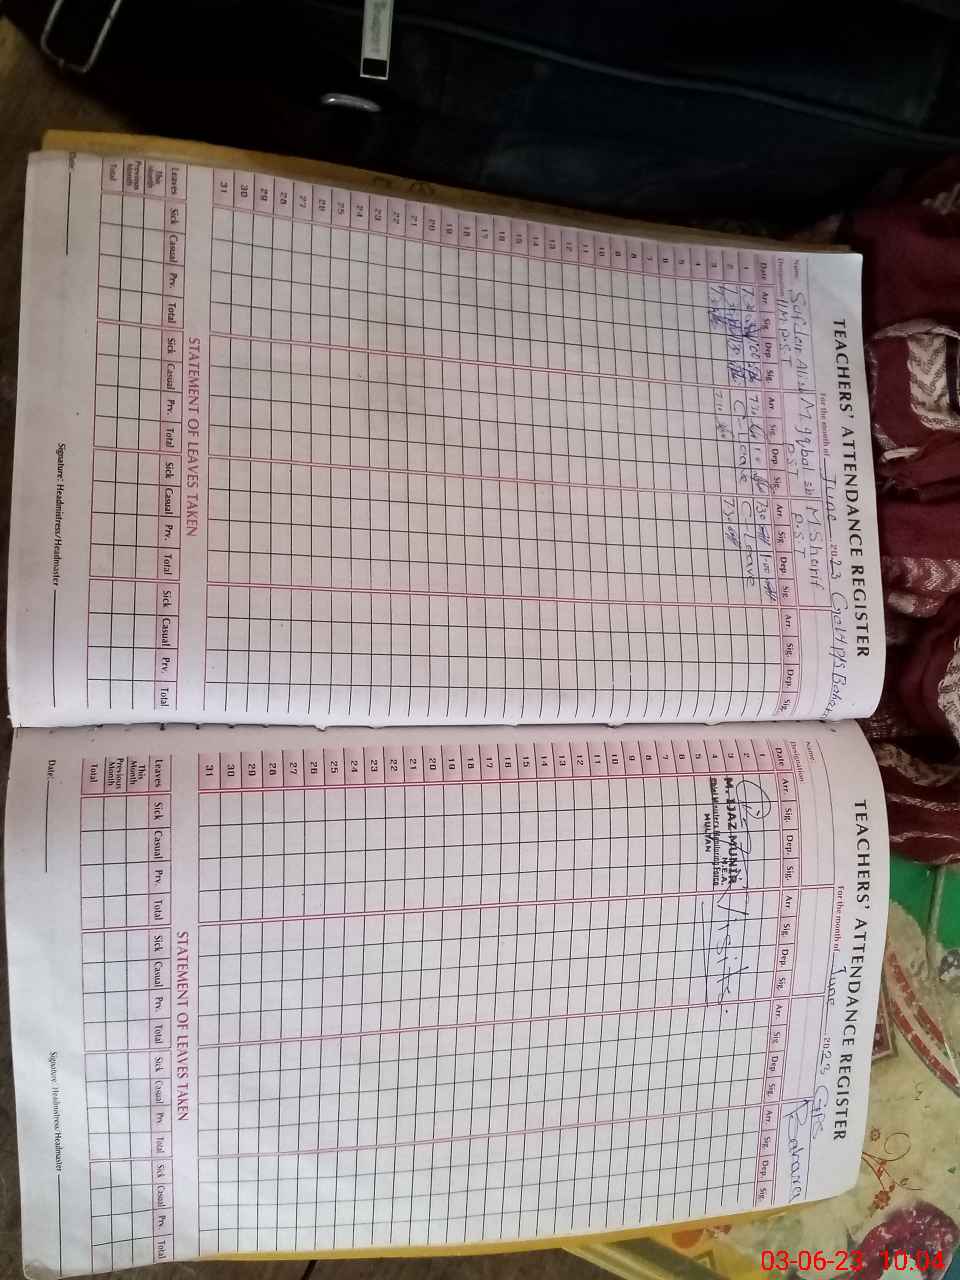 TEACHERS' ATTENDANCE REGISTER
For the month of June 2023
Name: Sufdar Ali M Iqbal M Sharif
Designation P.S.T P.S.T
Date Arr. Sig. Dep. Sig. Arr. Sig. Dep. Sig. Arr. Sig. Dep. Sig. Arr. Sig. Dep. Sig.
1 730 730 1 00
2 730 C-Leave C-Leave
3 730 730
4
5
6
7
8
9
10
11
12
13
14
15
16
17
18
19
20
21
22
23
24
25
26
27
28
29
30
31
STATEMENT OF LEAVES TAKEN
Leaves Sick Casual Prv. Total Sick Casual Prv. Total Sick Casual Prv. Total Sick Casual Prv. Total
This Month
Previous Month
Total
Date: Signature: Headmistress/Headmaster
TEACHERS' ATTENDANCE REGISTER
For the month of June 2023 GPS
Name:
Designation
Date Arr. Sig. Dep. Sig. Arr. Sig. Dep. Sig. Arr. Sig. Dep. Sig. Arr. Sig. Dep. Sig.
1
2
3 M. IJAZ MUNIR
M.E.A.
4 Chief Minister's Monitoring Force
MULTAN
5
6
7
8
9
10
11
12
13
14
15
16
17
18
19
20
21
22
23
24
25
26
27
28
29
30
31
STATEMENT OF LEAVES TAKEN
Leaves Sick Casual Prv. Total Sick Casual Prv. Total Sick Casual Prv. Total Sick Casual Prv. Total
This Month
Previous Month
Total
Date: Signature: Headmistress/Headmaster
03-06-23 10:04